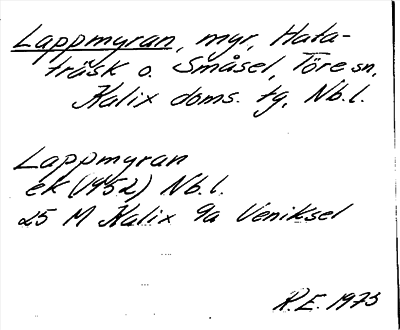 Lappmyran, myr, Hata-
träsk o. Småsel, Töre sn,
Kalix doms. tg, Nb. l.
Lappmyran
ek (1952) Nb. l.
25 M Kalix 9a Veniksel
R.E. 1973